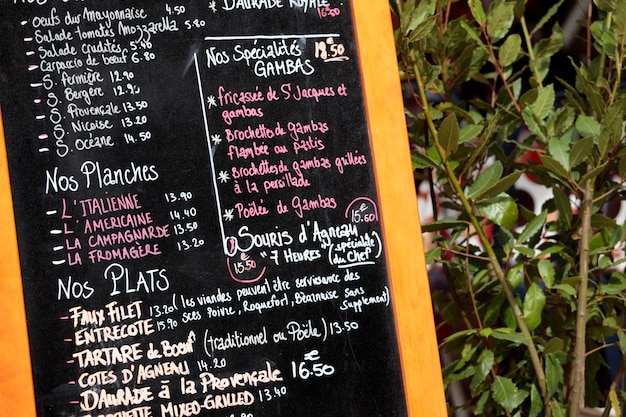 Oeufs dur Mayonnaise 4.50
- Salade Tomates Mozzarella
- Salade Crudités 5.40
- Carpaccio de bœuf 6.80
- S. Fermière 12.90
- S. Bergère 12.90
- S. Provençale 13.50
- S. Niçoise 13.20
- S. Océane 14.50
Nos Planches
- L'ITALIENNE 13.90
- L'AMERICAINE 14.40
- LA CAMPAGNARDE 13.50
- LA FROMAGERE 13.20
DAURADE ROYALE
16.50
Nos Spécialités 18.50€
GAMBAS
* fricassée de St Jacques et
gambas
* Brochettes de gambas
flambée au pastis
* Brochettes de gambas grillées
à la persillade
* Poêlée de Gambas 15.50€
SOURIS d'Agneau
15.50€ 7 Heures (spécialité
du Chef)
Nos PLATS
- Faux FILET 13.20 (les viandes peuvent être servies avec des
- ENTRECOTE 15.90 Sces Poivre, Roquefort, Béarnaise sans supplement)
- TARTARE de Bœuf (traditionnel ou Poêlé) 13.50
- COTES D'AGNEAU 14.20
- DAURADE à la Provençale 16.50€
BROCHETTE MIXED-GRILLED 13.40